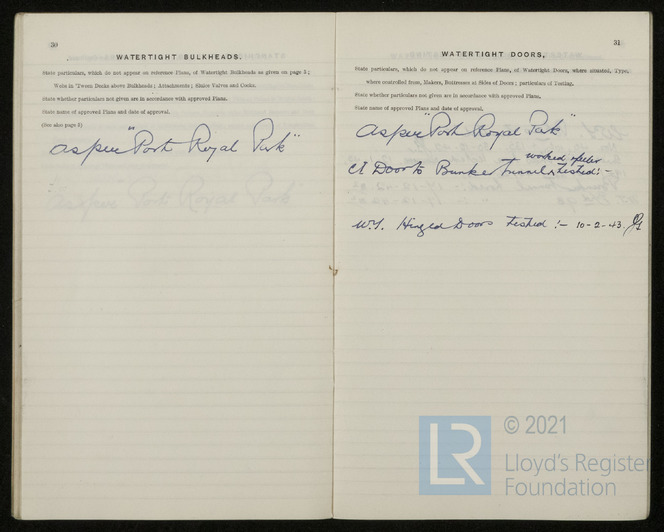 30
WATERTIGHT BULKHEADS.
State particulars, which do not appear on reference Plans, of Watertight Bulkheads as given on page 5;
Webs in 'Tween Decks above Bulkheads; Attachments; Sluice Valves and Cocks.
State whether particulars not given are in accordance with approved Plans.
State name of approved Plans and date of approval.
(See also page 5)
as per "Port Royal Park"
31
WATERTIGHT DOORS.
State particulars, which do not appear on reference Plans, of Watertight Doors, where situated, Type,
where controlled from, Makers, Buttresses at Sides of Doors; particulars of Testing.
State whether particulars not given are in accordance with approved Plans.
State name of approved Plans and date of approval.
As per "Port Royal Park"
worked
Door to Bunker Tunnel tested:-
W.T. Hinged Doors tested :- 10-2-43
LR
© 2021
Lloyd's Register
Foundation